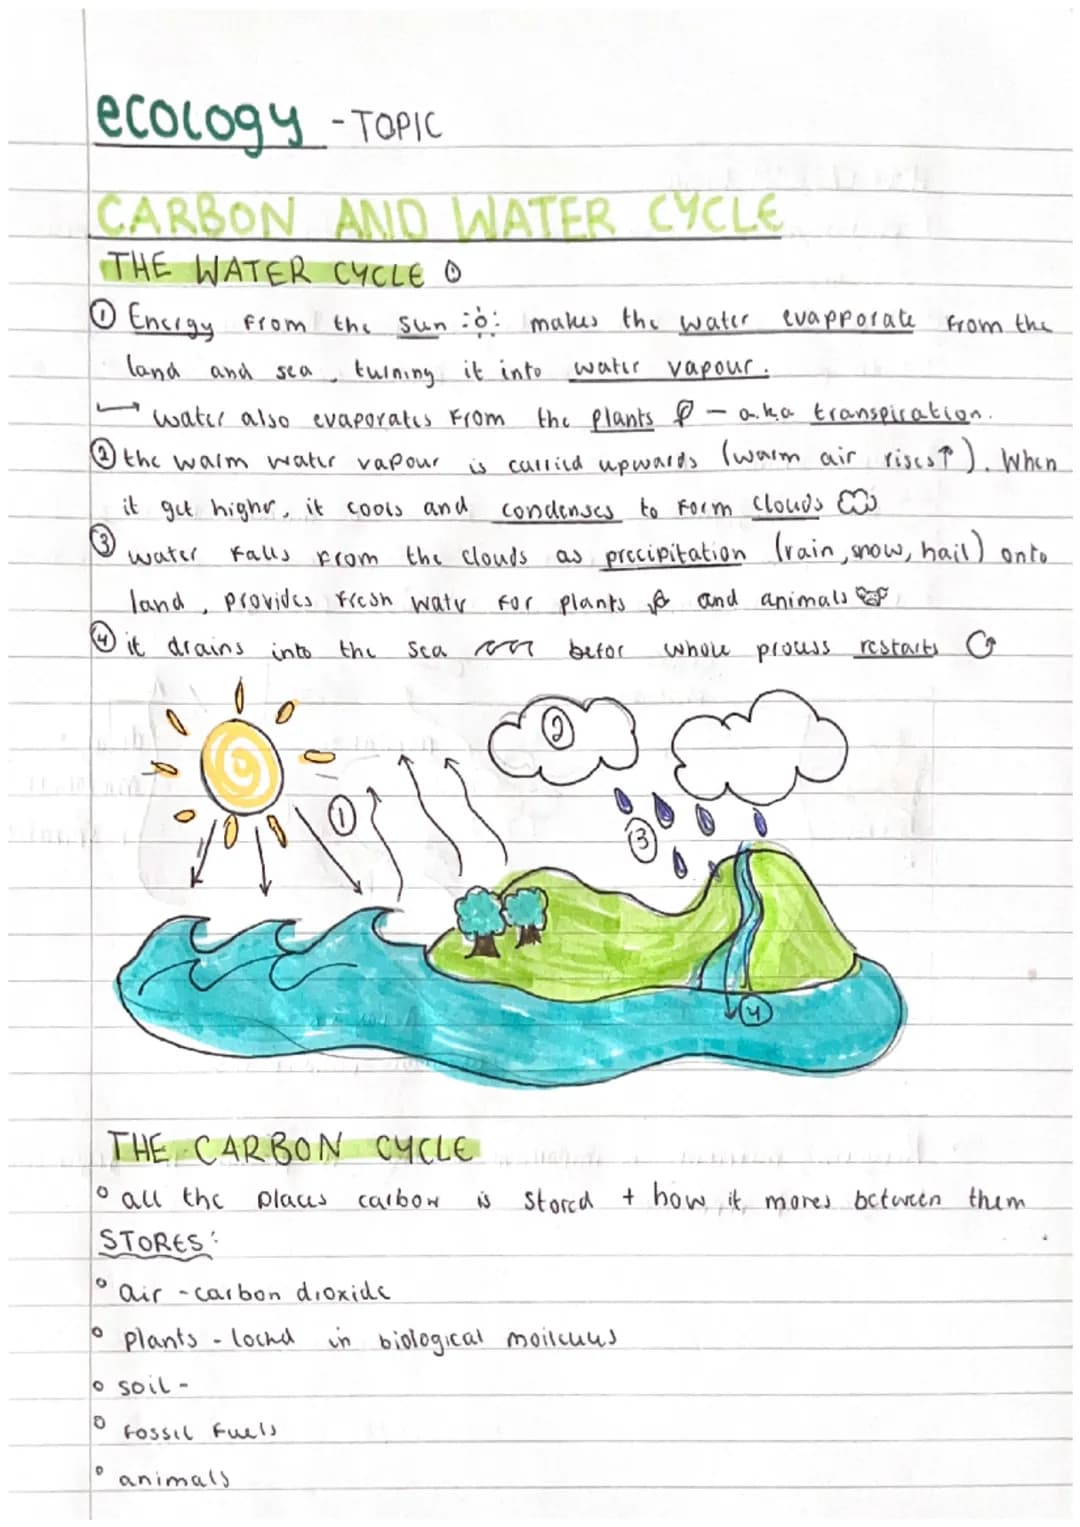 ecology - TOPIC
CARBON AND WATER CYCLE
THE WATER CYCLE
① Energy from the sun makes the water evapporate from the
land and sea, turning it into water vapour.
water also evaporates from the plants - a.k.a transpiration.
② the warm water vapour is carried upwards (warm air rises↑). When
it get higher, it cools and condenses to form clouds
③ water falls from the clouds as precipitation (rain, snow, hail) onto
land, provides fresh water for plants and animals
④ it drains into the sea befor whole process restarts
①
②
③
④
THE CARBON CYCLE
° all the places carbon is stored + how it moves between them
STORES:
° air - carbon dioxide
° plants - locked in biological moilcules
° soil -
° fossil fuels
° animals